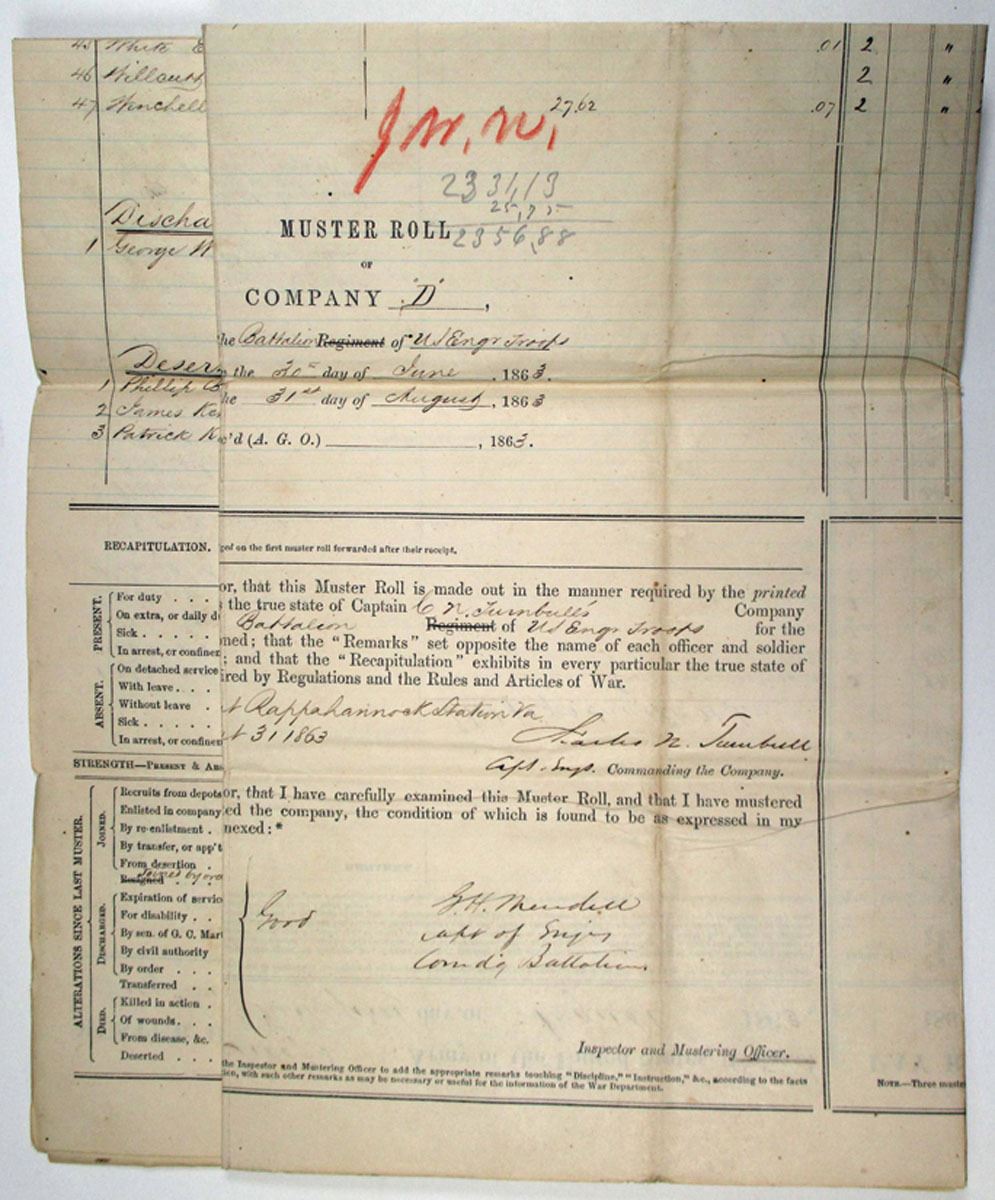 45 White E .01 2 "
46 Willcutt 2 "
47 Winchell 27.62 .07 2 "
J.W.N.
2331,13
25,75
2356,88
Discha
1 George W
MUSTER ROLL
OF
COMPANY "D",
he Battalion Regiment of US Engr Troops
Deser
n the 30th day of June, 1863.
1 Phillip
he 31st day of August, 1863
2 James Ke
3 Patrick K
c'd (A. G. O.) , 1863.
RECAPITULATION.
ged on the first muster roll forwarded after their receipt.
or, that this Muster Roll is made out in the manner required by the printed
s the true state of Captain C. N. Turnbull's Company
Battalion Regiment of US Engr Troops for the
ned; that the "Remarks" set opposite the name of each officer and soldier
; and that the "Recapitulation" exhibits in every particular the true state of
ired by Regulations and the Rules and Articles of War.
PRESENT.
For duty . . .
On extra, or daily d
Sick . . . . .
In arrest, or confinem
ABSENT.
On detached service
With leave . . .
Without leave .
Sick . . . . .
In arrest, or confinem
t Rappahannock Station Va
t 31 1863
Charles N. Turnbull
Capt. Engs. Commanding the Company.
STRENGTH—PRESENT & ABS
or, that I have carefully examined this Muster Roll, and that I have mustered
ed the company, the condition of which is found to be as expressed in my
nexed:*
ALTERATIONS SINCE LAST MUSTER.
JOINED.
Recruits from depots
Enlisted in company
By re-enlistment .
By transfer, or app't
From desertion .
Resigned . . .
Joined by ord
DISCHARGED.
Expiration of service
For disability . .
By sen. of G. C. Mart
By civil authority
By order . . .
Transferred . .
DIED.
Killed in action .
Of wounds. . .
From disease, &c.
Deserted . . .
Good
G. H. Mendell
Capt of Engrs
Comdg Battalion
Inspector and Mustering Officer.
the Inspector and Mustering Officer to add the appropriate remarks touching "Discipline," "Instruction," &c., according to the facts
ion, with such other remarks as may be necessary or useful for the information of the War Department.
NOTE.—Three muste